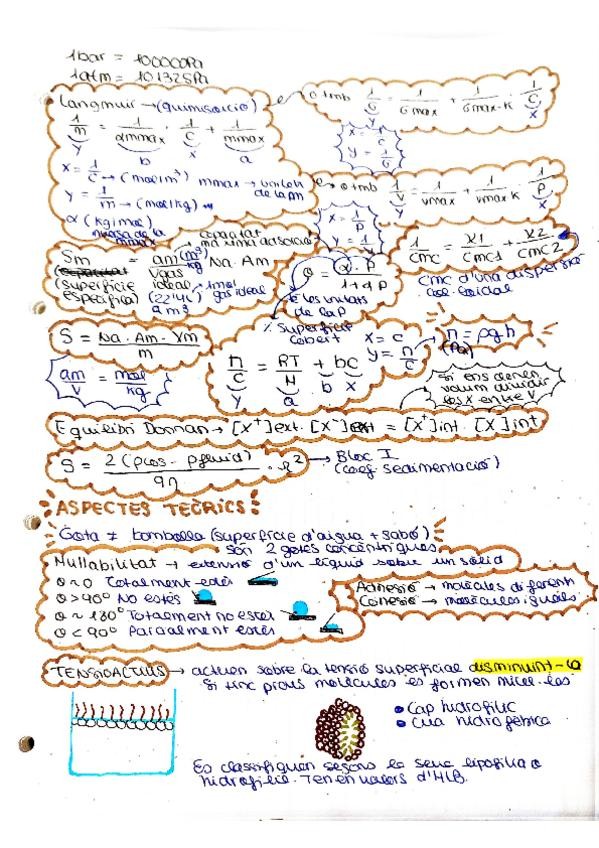 1bar = 100000Pa
1atm = 101325Pa
Langmuir → (quimisorció)
1/m = 1/αmmax · 1/C + 1/mmax
y b x a
x = 1/C → (mol/m³) mmax →
y = 1/m → (mol/kg)
α (kg/mol)
o tmb 1/G = 1/Gmax + 1/Gmax·K · 1/C
y x
x = 1/C
y = 1/G
o tmb 1/V = 1/Vmax + 1/Vmax·K · 1/P
y x
x = 1/P
y = 1/V
capacitat màxima adsorció
Sm = am (m³/kg) / Vgas ideal · Na · Am
(superfície específica)
(22'4L) → 1mol gas ideal
am³
θ = α·P / 1+α·P
és les unitats de la P
% superfície cobert
1/cmc = x1/cmc1 + x2/cmc2
cmc d'una dispersió col·loidal
S = Na · Am · Vm / m
am/V = mol/kg
π/C = RT/M + bC
y a b x
x = c
y = π/C
π = ρgh
(Pa)
Si ens donen volum
entre V
Equilibri Donnan → [X⁺]ext · [X⁻]ext = [X⁺]int · [X]int
S = 2(ρcos - ρfluid) / 9η · r² → Bloc I
(coef. sedimentació)
ASPECTES TEÒRICS:
Gota ≠ bombolla (superfície d'aigua + sabó)
són 2 gotes concèntriques
Mullabilitat → extensió d'un líquid sobre un sòlid
θ ≈ 0 Totalment estès
θ > 90° No estés
θ ≈ 180° Totalment no estés
θ < 90° Parcialment estés
Adhesió → molècules diferents
Cohesió → molècules iguals
TENSIOACTIUS → actuen sobre la tensió superficial disminuint-la
Si tinc prous molècules es formen micel·les
• Cap hidrofílic
• Cua hidrofòbica
Es classifiquen segons la seva lipofília o
hidrofília. Tenen valors d'HLB.